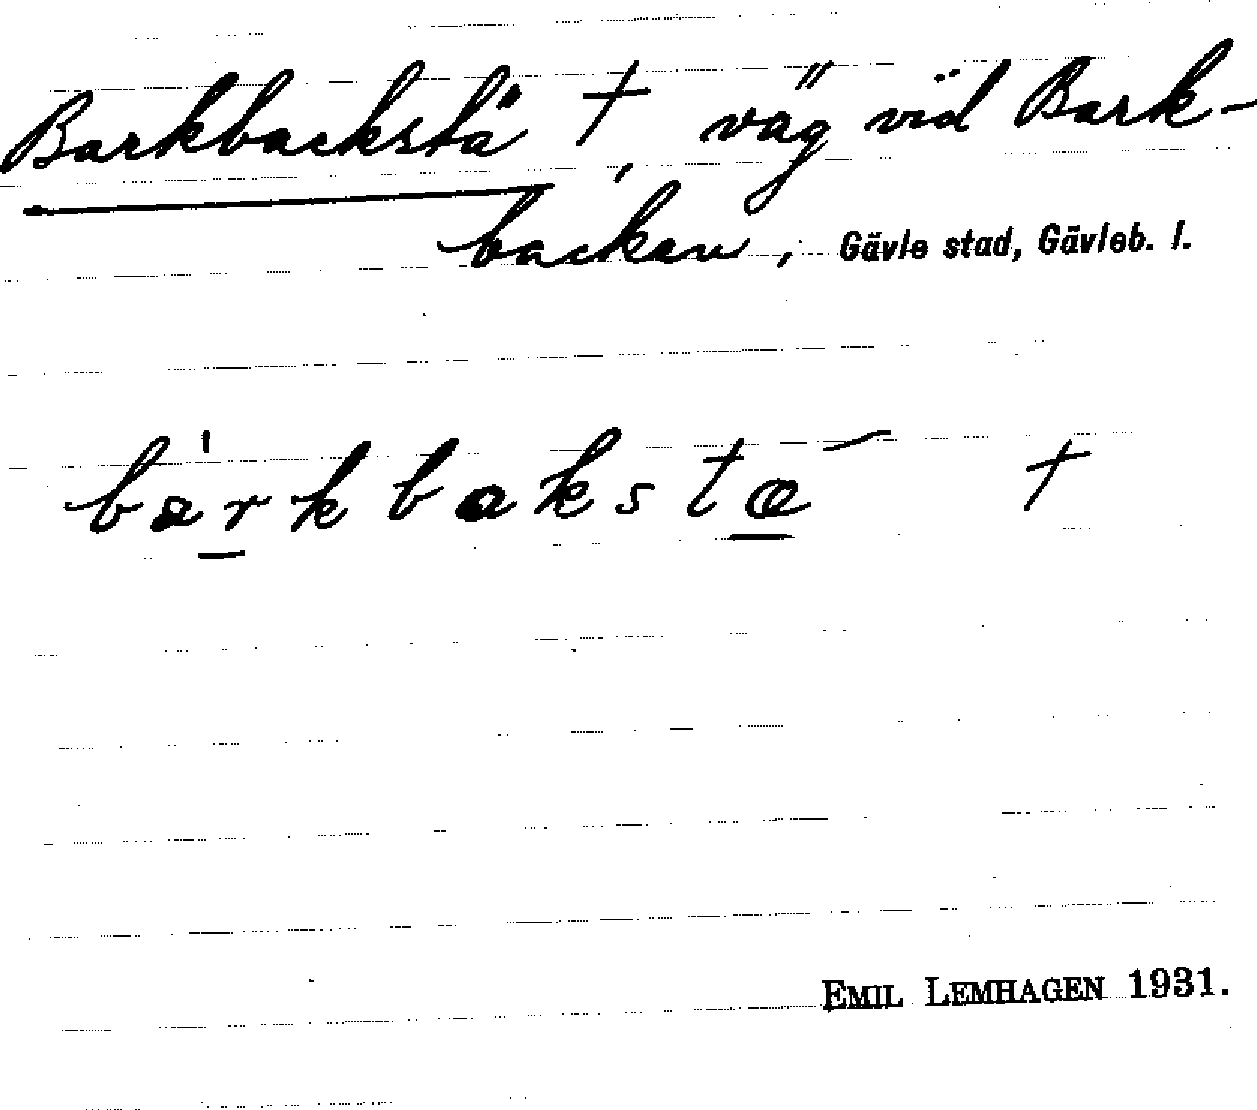 Barkbackstä †, väg vid Bark-
backen, Gävle stad, Gävleb. l.
barkbakstæ †
EMIL LEMHAGEN 1931.